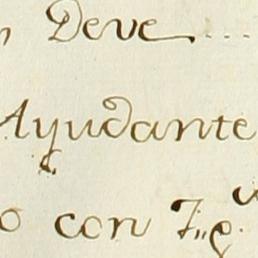 Deve
Ayudante
con